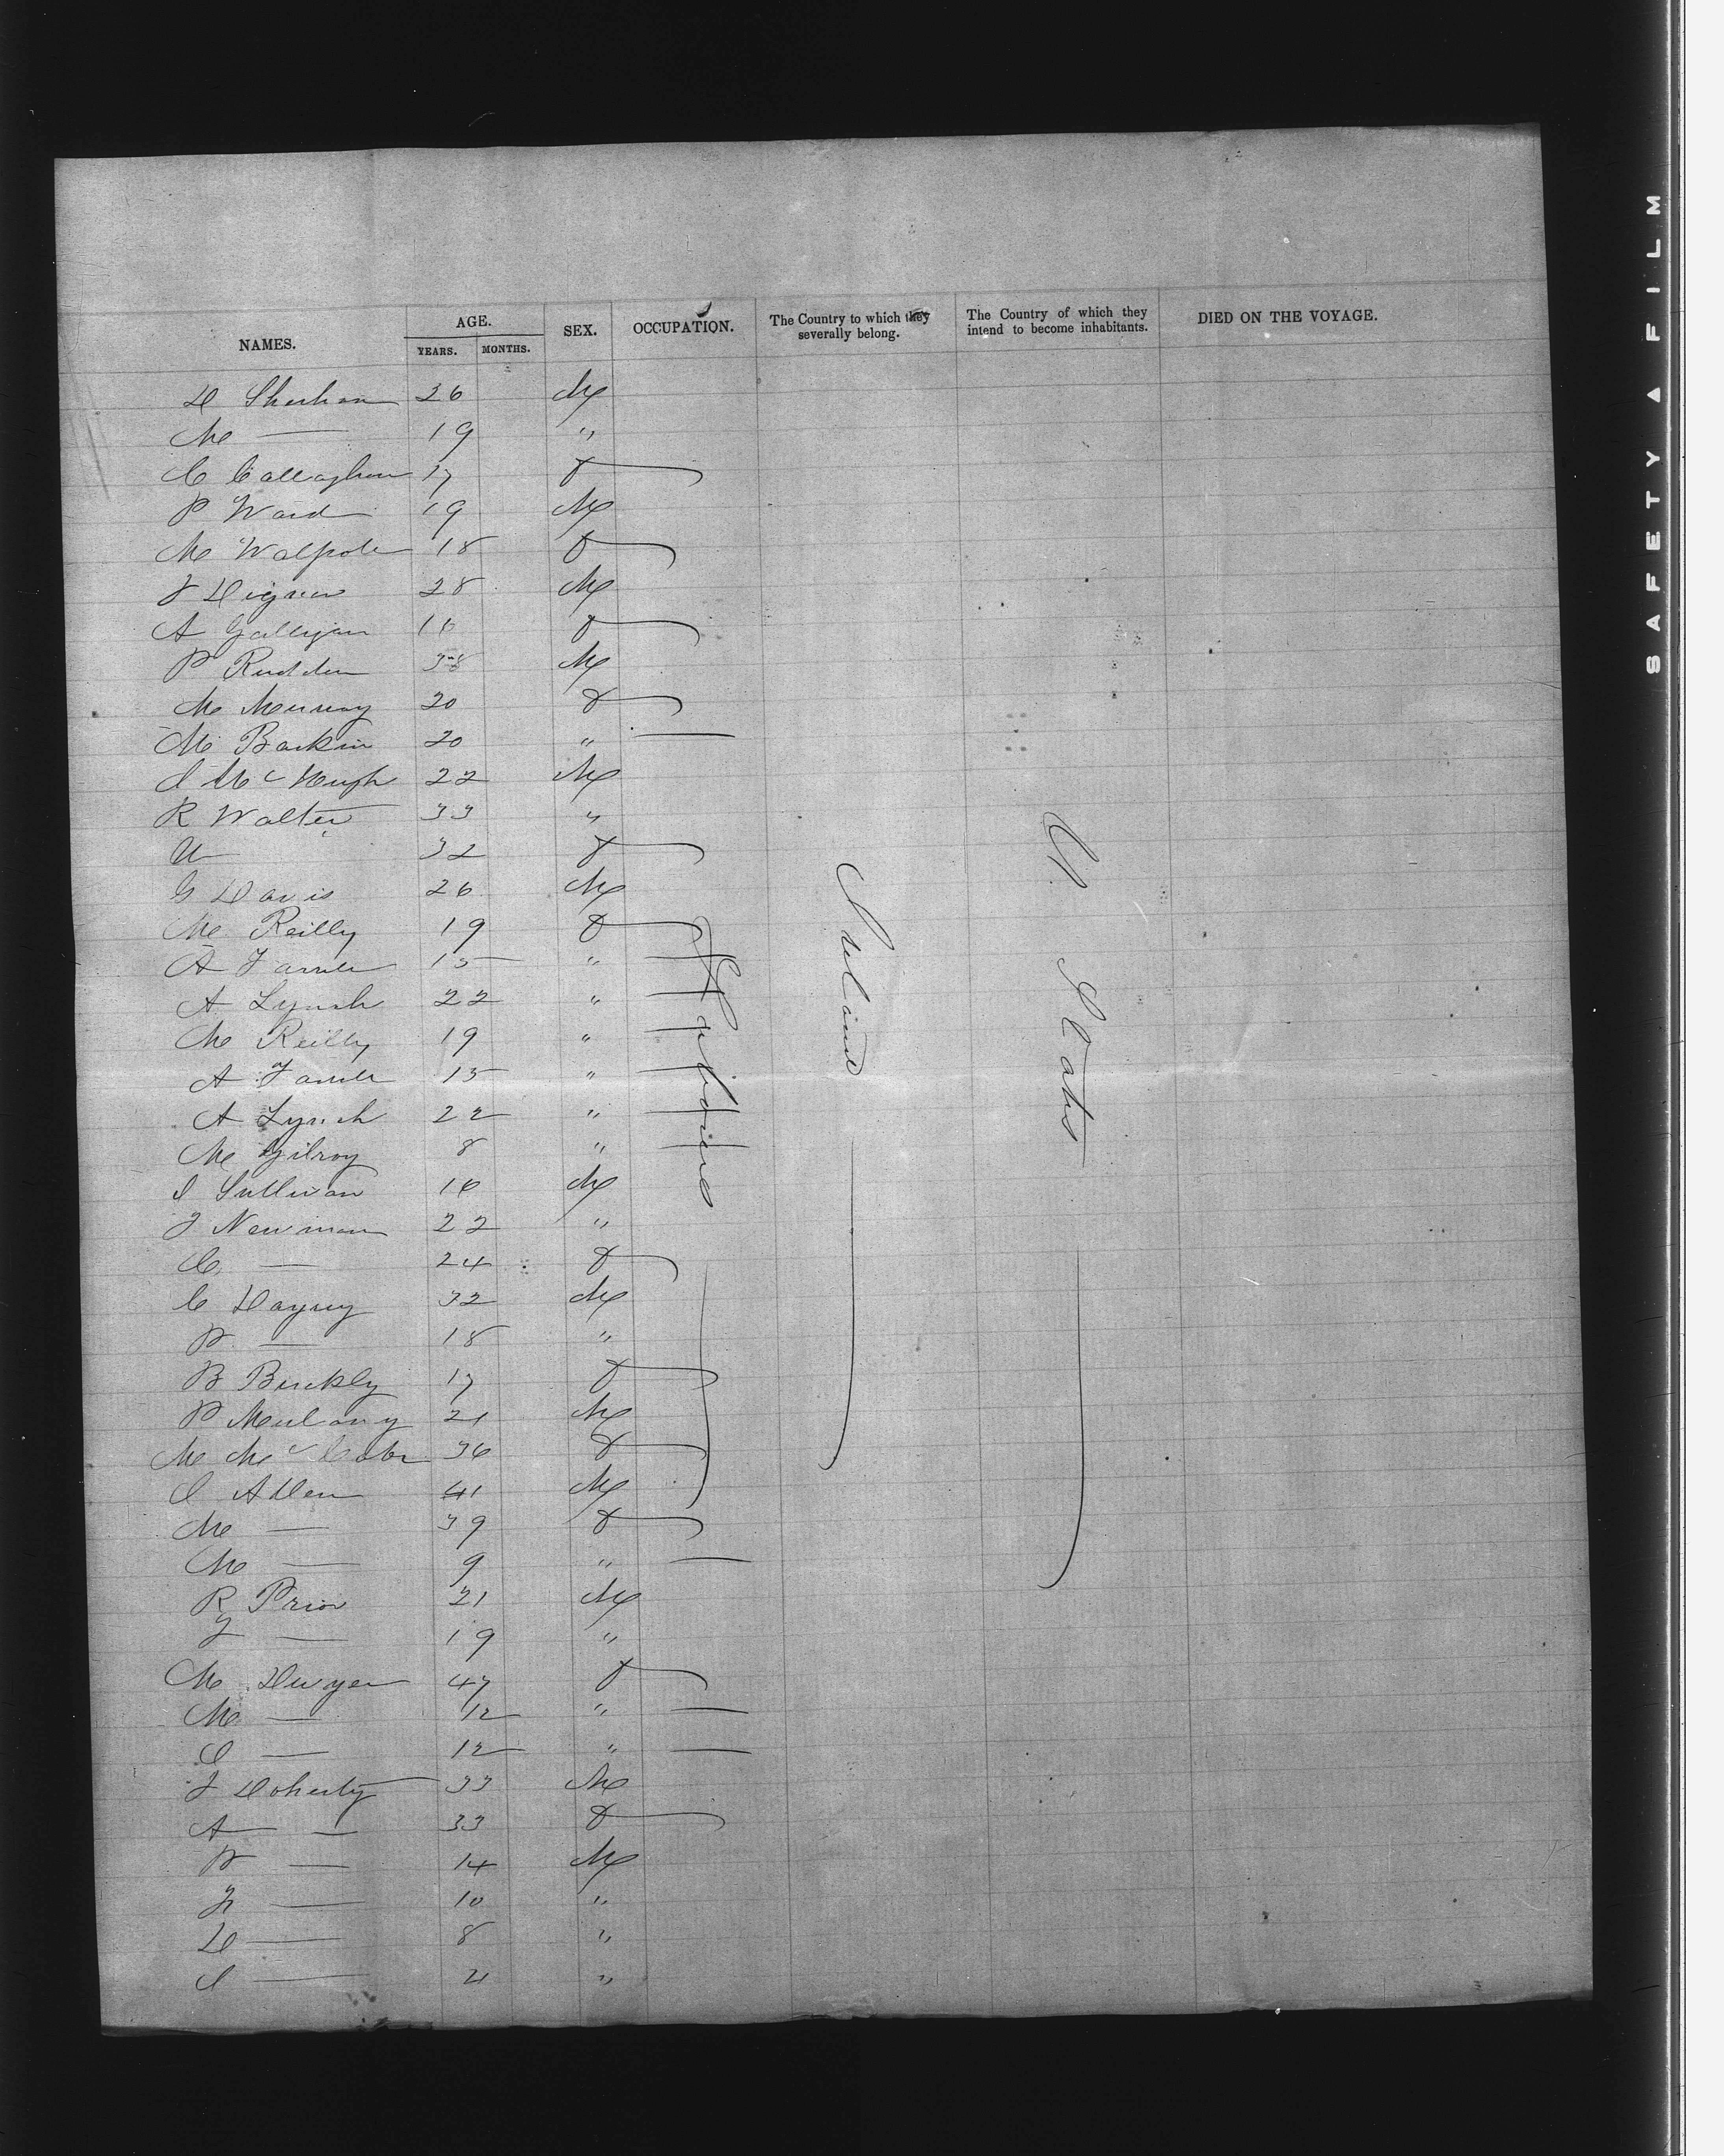 NAMES. AGE. SEX. OCCUPATION. The Country to which they severally belong. The Country of which they intend to become inhabitants. DIED ON THE VOYAGE.
YEARS. MONTHS.
D Sheehan 26 M
M — 19 "
C Callaghan 17 F
P Ward 19 M
M Walpole 18 F
J Dignan 28 M
A Galligan F
P Rudden 38 M
M Murray 20 F
M Barkin 20 " —
J McHugh 22 M
R Walter 33 "
32 F
G Davis 26 M
M Reilly 19 F
A 15 "
A Lynch 22 "
M Reilly 19 "
A 15 "
A Lynch 22 "
M Gilroy 8 "
J Sullivan 16 M
J Newman 22 "
C — 24 F
C 32 M
P — 18 "
B Buckly 17 F
P Mulany 21 M
M McCabe 36 F
J Allen 41 M
M — 39 F
M — 9 " —
R Prior 21 M
J — 19 "
M Dwyer 47 F
M — 12 " —
J — 12 " —
J Doherty 33 M
A — 33 F
P — 14 M
10 "
D — 8 "
J — "
Labourers
Ireland
U. States
SAFETY FILM